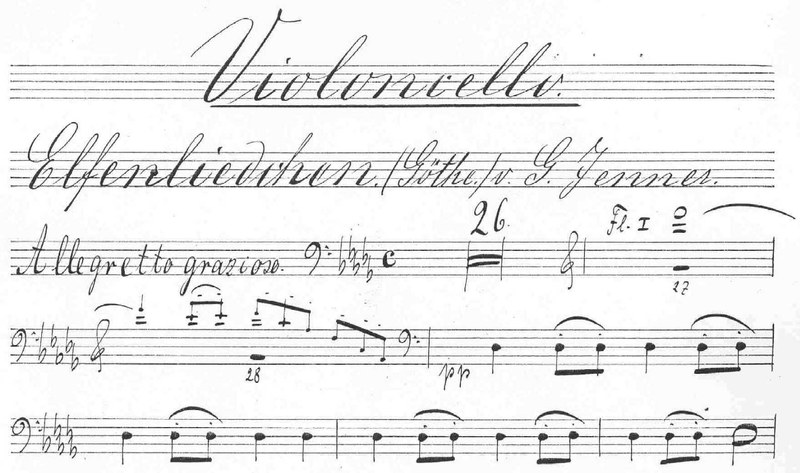 Violoncello.
Elfenliedchen. (Göthe.) v. G. Jenner.
Allegretto grazioso. 26. Fl. I 27
28 pp